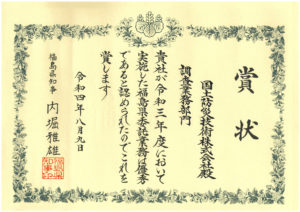 賞状
国土防災技術株式会社殿
調査業務部門
貴社が令和三年度において
実施した福島県委託業務は優秀
であると認められたのでこれを
賞します
令和四年八月九日
福島県知事 内堀雅雄